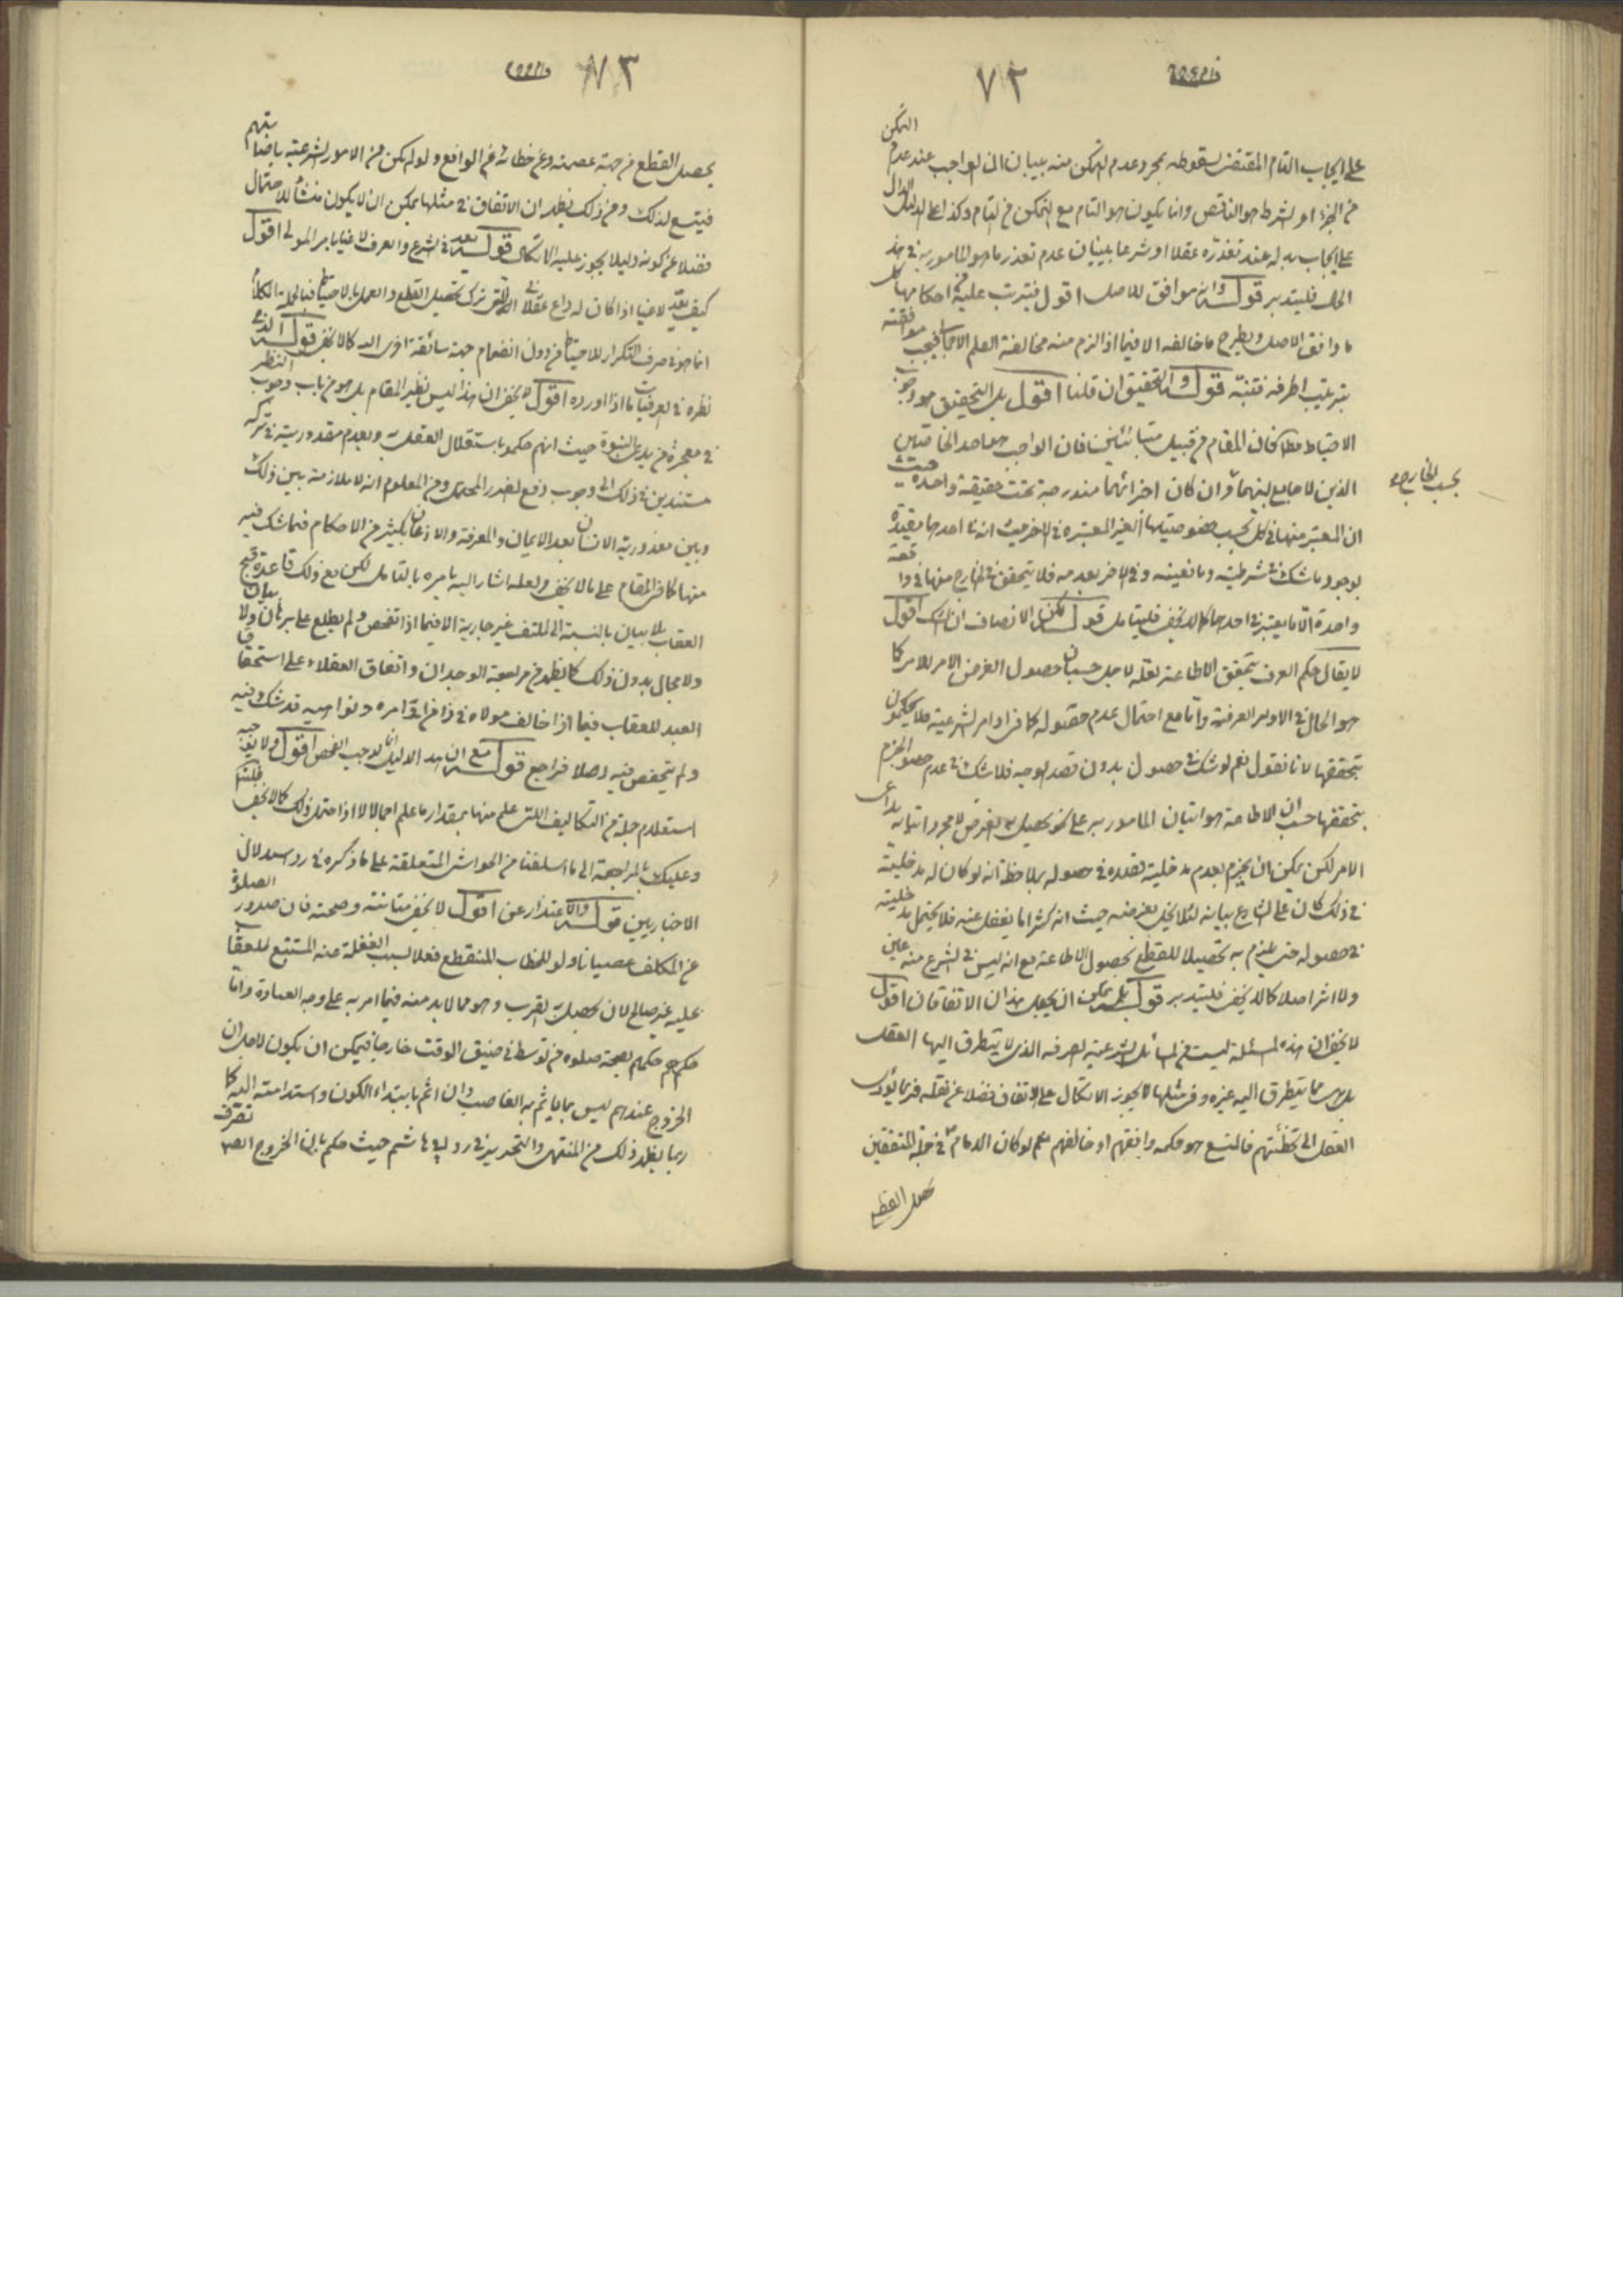 ٧٢
التمكن
على ايجاب التام المقتضى لسقوطه بمجرد عدم التمكن منه ببيان ان الواجب عند عدم
من الجزء او الشرط هو الناقص وانما يكون هو التام مع التمكن من التمام وكذا على الدليل الدال
على ايجاب بدله عند تعذره عقلا او شرعا بلسان عدم تعذر ما هو المامور به في هذ
الحال فليتدبر قوله وان موافق للاصل اقول فيترتب عليه احكامها كل
ما وافق الاصل ويطرح ما خالفه الا فيما اذا لزم منه مخالفة العلم الاجمالي فيجب موافقته
بترتيب اطرافه فتنبه قوله والتحقيق ان قلنا اقول بل التحقيق هو وجوب
الاحتياط مطلقا كان المقام من قبيل متباينين فان الواجب هو احد الخاصين
الذين لا جامع بينهما وان كان اجزائهما مندرجة تحت حقيقة واحدة حيث
بحسب الخارج
ان المعتبر منها في كل بحسب خصوصيتها الغير المعتبره في الاخر حيث انه في احدهما مقيدة
بوجود ما شك في شرطيته ومانعيته وفي الاخر بعدمه فلا يتحقق في الخارج منها في وا
واحدة الا ما يعتبر في احدهما كما لا يخفى فليتامل قوله لكن الانصاف ان الشك اقول
لا يقال حكم العرف بتحقق الاطاعة لعله لاجل حسبان حصول الغرض الامر للامر كما
هو الحال في الاوامر العرفية واما مع احتمال عدم حصوله كما في اوامر الشرعية فلا يحكمون
بتحققها لانا نقول نعم لو شك في حصول بدون قصد الوجه فلا شك في عدم حصول الجزم
بتحققها حسب ان الاطاعة هو اتيان المامور به على نحو يحصل به الغرض لا مجرد اتيانه بداعى
الامر لكن يمكن ان يجزم بعدم مدخلية قصده في حصوله بملاحظة انه لو كان له مدخلية
في ذلك كان على الشارع بيانه لئلا يخل بغرضه حيث انه كثيرا ما يغفل عنه فلا يحتمل مدخليته
في حصوله حتى يلزم به تحصيلا للقطع بحصول الاطاعة مع انه ليس في الشرع منه عين
ولا اثر اصلا كما لا يخفى فليتدبر قوله بل يمكن ان يجعل هذان الاتفاقان اقول
لا يخفى ان هذه المسئلة ليست من المسائل الشرعية الصرفه الذى لا يتطرق اليها العقل
بل هى مما يتطرق اليه غيره وفى مثلها لا يجوز الاتكال على الاتفاق فضلا عن نقله فربما يؤدى
العقل الى تخطئتهم فالمتبع هو حكمه وافقهم او خالفهم نعم لو كان الامام ع في جملة المتفقين
يحصل القطع
٧٣
يحصل القطع من جهة عصمته وعن خطائه في الواقع ولو لم يكن من الامور الشرعية باضا بتهم
فيتبع لذلك ومن ذلك يظهر ان الاتفاق في مثلها يمكن ان لا يكون منشأ للاحتمال
فضلا عن كونه دليلا يجوز عليه الاتكال قوله بعد في الشرع والعرف لاغيا بامر المولى اقول
كيف يعد لاغيا اذا كان له داع عقلائي الى ترك تحصيل القطع والعمل بالاحتياط وبالجملة الكلام
انما هو في صرف التكرار للاحتياط من دون انضمام جهة سائغة اخرى اليه كما لا يخفى قوله الذى
نظره في العرفيات ما اذا اورده اقول لا يخفى ان هذا ليس نظير المقام بل هو من باب وجوب النظر
في معجزة من يدعى النبوة حيث انهم حكموا باستقلال العقل به وبعدم معذوريته في تركه
مستندين في ذلك الى وجوب دفع الضرر المحتمل ومن المعلوم انه لا ملازمة بين ذلك
وبين معذورية الانسان بعد الايمان والمعرفة والاذعان بكثير من الاحكام فيما شك فيه
منها كما في المقام على ما لا يخفى ولعله اشار اليه بامره بالتامل لكن مع ذلك قاعدة قبح
العقاب بلا بيان بالنسبة الى الملتفت غير جارية الا فيما اذا تفحص ولم يطلع على برهان ولا بيان
ولا مجال بدون ذلك كما يظهر من مراجعة الوجدان واتفاق العقلاء على استحقاق
العبد للعقاب فيما اذا خالف مولاه في واقع اوامره ونواهيه قد شك فيه
ولم يتفحص فيه اصلا فراجع قوله مع ان هذ الدليل انما يوجب الفحص اقول ولا يوجبه
استعلام جملة من التكاليف التى علم منها بمقدار ما علم اجمالا الا اذا احتمل ذلك كما لا يخفى
وعليك بالمراجعة الى ما اسلفنا من الحواشى المتعلقة على ما ذكره في رد استدلال
الاخباريين قوله والاعتذار عن اقول لا يخفى متانته وصحته فان صدور الصلوة
عن المكلف عصيانا ولو للخطاب المنقطع فعلا بسبب الغفلة عنه المستتبع للعقاب
عليه غير صالح لان يحصل به التقرب وهو مما لا بد منه فيما امر به على وجه العبادة واما
حكمهم بصحة صلوة من توسط في ضيق الوقت خارجا فيمكن ان يكون لاجل ان
الخروج عندهم ليس مما ياثم به الغاصب وان اثم بابتداء الكون واستدامته اليه كما
ربما يظهر ذلك من المنتهى والتحرير في رد ابى هاشم حيث حكم بان الخروج ايضا تصرف